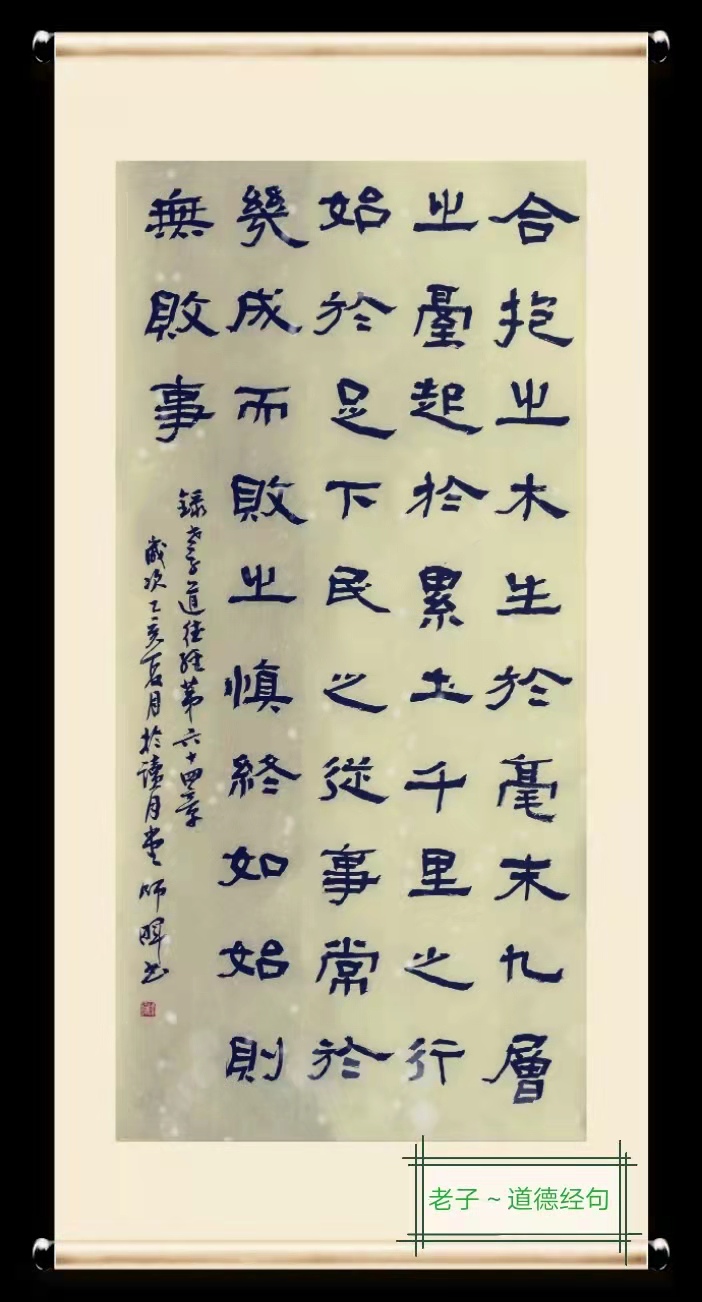 合抱之木生於毫末九層
之臺起於累土千里之行
始於足下民之從事常於
幾成而敗之慎終如始則
無敗事
録老子道德經第六十四章
歲次乙亥夏月於讀月堂師暉书
老子~道德经句